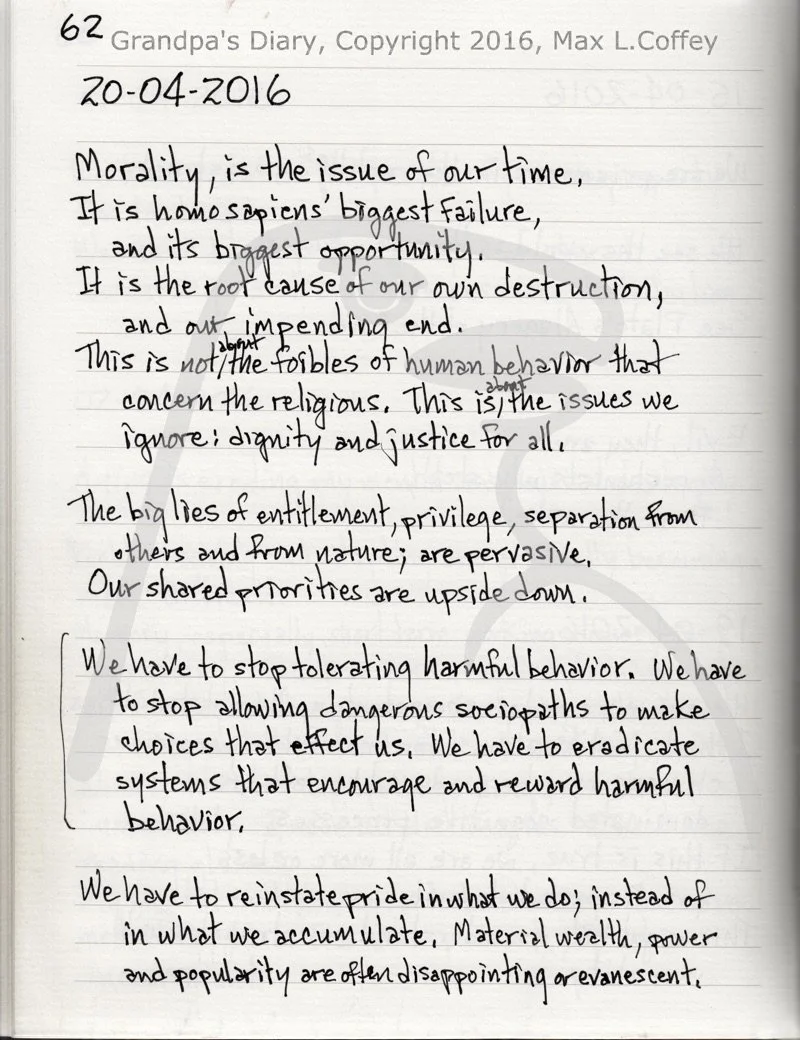 62
Grandpa's Diary, Copyright 2016, Max L.Coffey
20-04-2016
Morality, is the issue of our time,
It is homo sapiens' biggest failure,
and its biggest opportunity.
It is the root cause of our own destruction,
and our impending end.
This is not about the foibles of human behavior that
concern the religious. This is about the issues we
ignore: dignity and justice for all.
The big lies of entitlement, privilege, separation from
others and from nature; are pervasive.
Our shared priorities are upside down.
We have to stop tolerating harmful behavior. We have
to stop allowing dangerous sociopaths to make
choices that effect us. We have to eradicate
systems that encourage and reward harmful
behavior.
We have to reinstate pride in what we do; instead of
in what we accumulate. Material wealth, power
and popularity are often disappointing or evanescent.